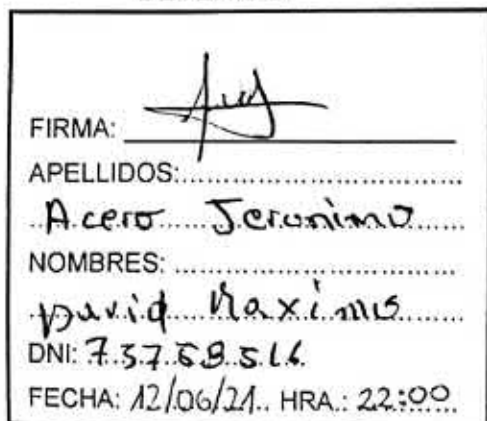 FIRMA:
APELLIDOS:
Acero Jeronimo
NOMBRES:
David Maximo
DNI: 73768516
FECHA: 12/06/21 HRA.: 22:00